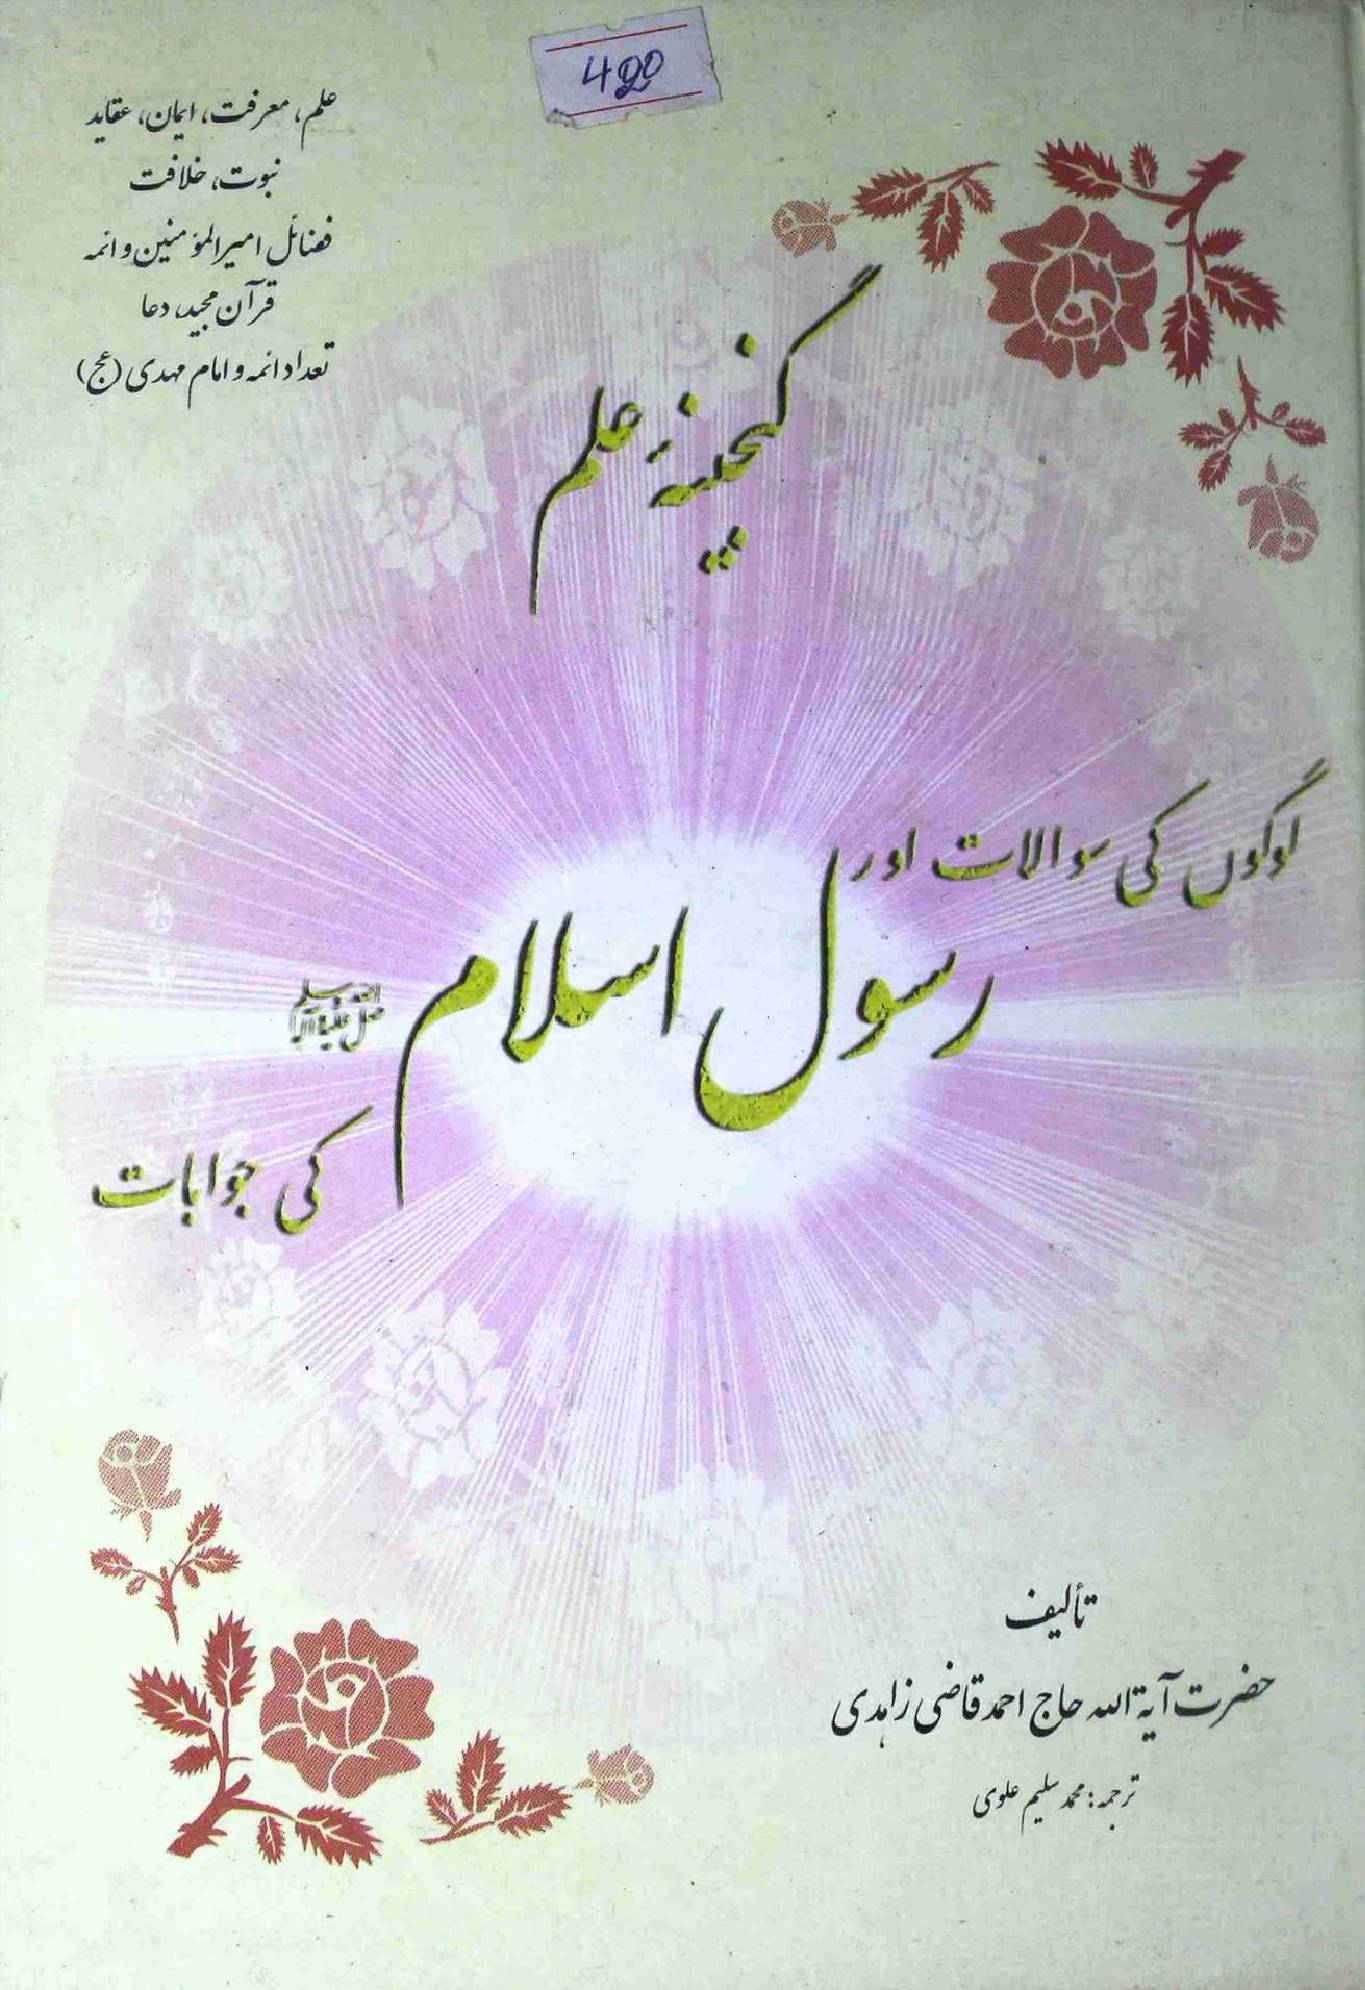 420
علم، معرفت، ایمان، عقاید
نبوت، خلافت
فضائل امیرالمؤمنین و ائمہ
قرآن مجید، دعا
تعداد ائمہ و امام مہدی (عج)
گنجینۂ علم
لوگوں کی سوالات اور
رسول اسلام صلی اللہ علیہ وآلہ وسلم
کی جوابات
تألیف
حضرت آیة اللہ حاج احمد قاضی زاہدی
ترجمہ: محمد سلیم علوی